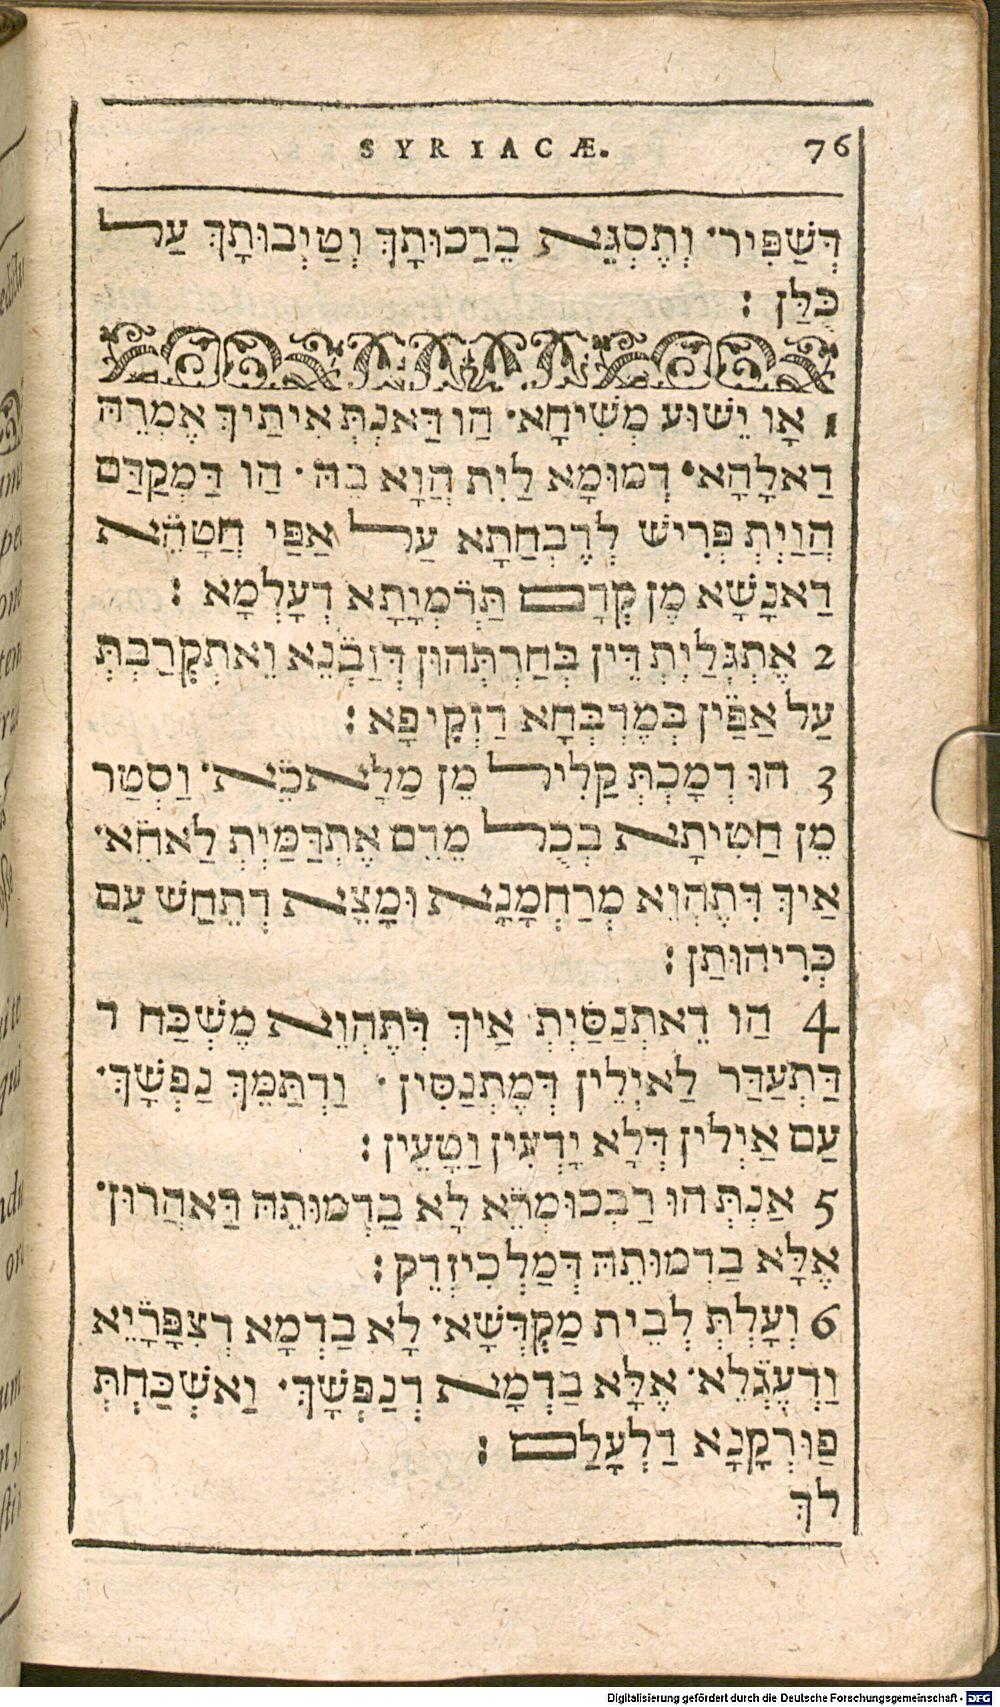 SYRIACÆ. 76
דְּשַׁפִּיר· וְתֶסְגֵּא בֵרַכוּתָךְ וְטַיְבוּתָךְ עַל
כֻּלַּן :
1 אָו יֵשׁוּע מְשִׁיחָא· הַו דַּאנְתְּ אִיתַיךְ אֶמְרֵהּ
דַאלָהָא· דְמוּמָא לַיִת הֲוָא בֵהּ· הַו דַּמְקַדַּם
הֲוַיְתְּ פְּרִישׁ לְדֶבְחַתָא עַל אַפַּי חֲטָהֵא
דַאנָשָׁא מֶן קְדָם תַּרְמְיָתָא דְעָלְמָא :
2 אֶתְגְּלַיְתְּ דֵּין בְּחַרְתְּהוּן דְּזַבְנֵא וֵאתְקָרַבְתְּ
עַל אַפַּין בְּמֶדְבְּחָא דַזְקִיפָא :
3 הוּ דְמָכְתְּ קַלִּיל מֵן מַלָאכֵא· וַסְטַר
מֵן חַטִיתָא בְּכֻל מֵדֵם אֶתְדַּמַּיְתְּ לַאחֵא·
אַיךְ דְּתֶהְוֵא מְרַחְמָנָא וּמָצֵא דְתֵחַשׁ עַם
כְּרִיהוּתַן :
4 הַו דֵאתְנַסַּיְתְּ אַיךְ דְּתֶהְוֵא מֶשְׁכַּח ד
דַּתְעַדַּר לַאיְלֵין דְּמֶתְנַסֵּין· וַדְתַּמֵּךְ נַפְשָׁךְ·
עַם אַיְלֵין דְּלָא יָדְעִין וַטָעֵין :
5 אַנְתְּ הוּ רַבְכּוּמְרֵא לָא בַדְמוּתֵהּ דַּאהֲרוּן·
אֶלָּא בַדְמוּתֵהּ דְּמַלְכִיזְדֵק :
6 וְעָלְתְּ לְבֵית מַקְדְּשָׁא· לָא בַדְמָא דְצִפָּרָיֵא
וַדְעֶגְלֵא· אֶלָּא בַדְמָא דְנַפְשָׁךְ· וַאשְׁכַּחְתְּ
פּוּרְקָנָא דַלְעָלַם :
לךְ
Digitalisierung gefördert durch die Deutsche Forschungsgemeinschaft - DFG